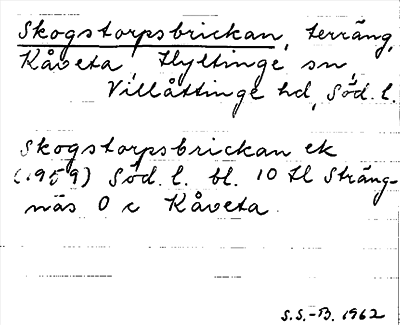 Skogstorpsbrickan, terräng,
Kåveta, Hyltinge sn,
Villåttinge hd, Söd. l.
Skogstorpsbrickan ek
(1959) Söd. l. bl. 10 tl Sträng-
näs O c Kåveta
S.S.-B. 1962